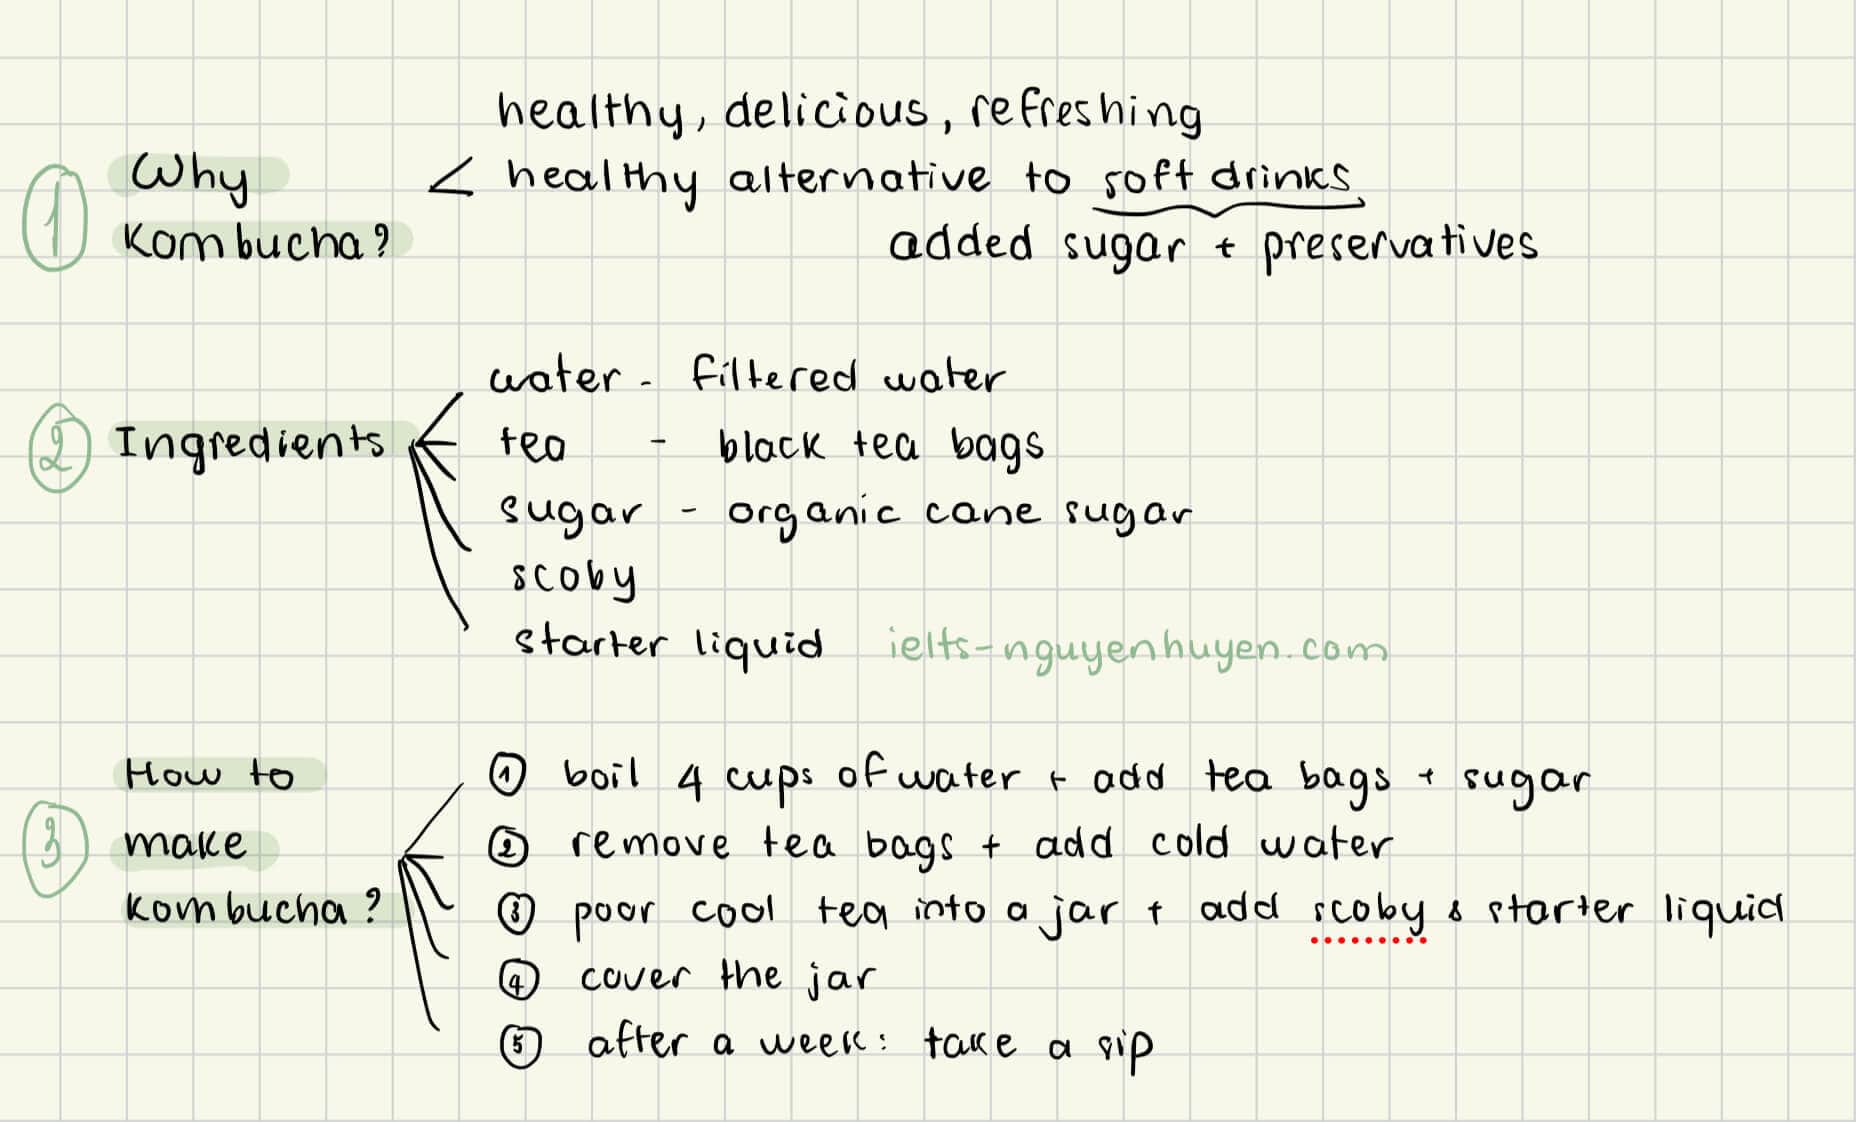 healthy, delicious, refreshing
① Why < healthy alternative to soft drinks
Kombucha? added sugar + preservatives
water - filtered water
② Ingredients tea - black tea bags
sugar - organic cane sugar
scoby
starter liquid ielts-nguyenhuyen.com
How to ① boil 4 cups of water + add tea bags + sugar
③ make ② remove tea bags + add cold water
kombucha? ③ poor cool tea into a jar + add scoby & starter liquid
④ cover the jar
⑤ after a week: take a sip